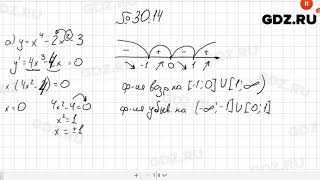 GDZ.RU
№30.14
а) y = x⁴ - 2x² - 3
y' = 4x³ - 4x = 0
x (4x² - 4) = 0
x = 0
4x² - 4 = 0
x² = 1
x = ±1
- + - +
-1 0 1
ф-ия возр на [-1; 0] U [1; ∞)
ф-ия убыв. на (-∞; -1] U [0; 1]
GDZ.RU